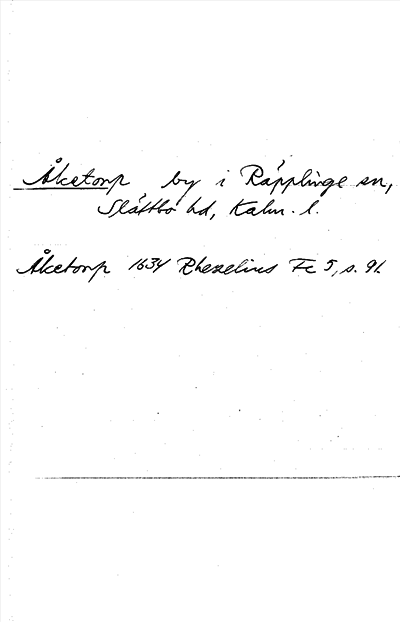 Åketorp by i Räpplinge sn,
Slättbo hd, Kalm. l.
Åketorp 1634 Rhezelius Fc 5, s. 91.